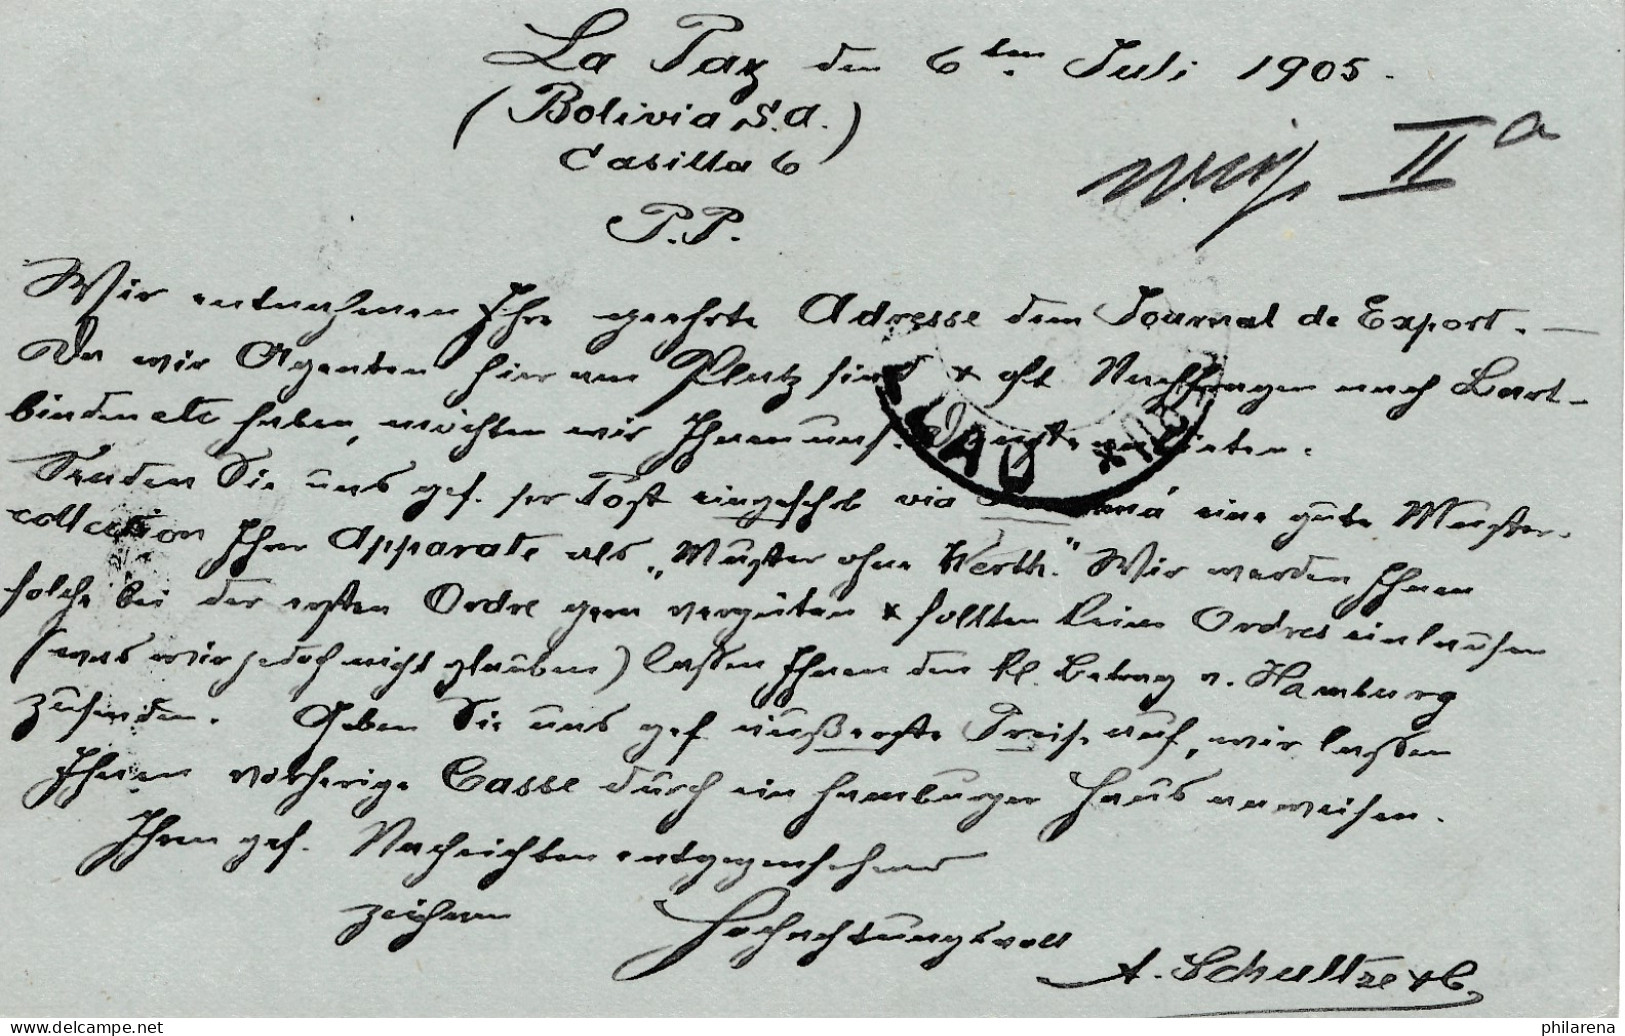 La Paz den 6ten Juli 1905.
(Bolivia S.A.)
Casilla 6
IIa
P.P.
Wir entnehmen Ihre geehrte Adresse dem Journal de Export. —
Da wir Agenten hier am Platz sind + oft Nachfragen nach Bart-
binden etc haben, möchten wir Ihnen uns. Dienste anbieten.
Senden Sie uns gef. per Post eingeschrb via Panamá eine gute Muster-
collection Ihrer Apparate als „Muster ohne Werth." Wir werden Ihnen
solche bei der ersten Ordre gern vergüten + sollten keine Ordres einlaufen
(was wir jedoch nicht glauben) lassen Ihnen den kl. Betrag v. Hamburg
zusenden. Geben Sie uns gef äußerste Preise auf, wir lassen
Ihnen vorherige Casse durch ein hamburger Haus anweisen.
Ihren gef. Nachrichten entgegensehend
zeichnen Hochachtungsvoll
A. Schultze & C.
philarena